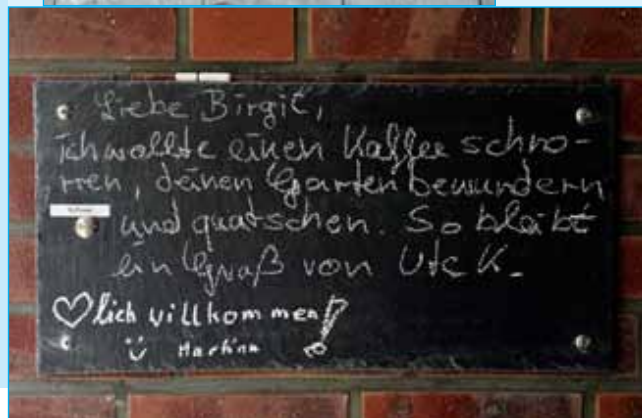 Liebe Birgit,
ich wollte einen Kaffee schno-
rren, deinen Garten bewundern
und quatschen. So bleibt
ein Gruß von Ute K.
♡lich willkommen!
Martina